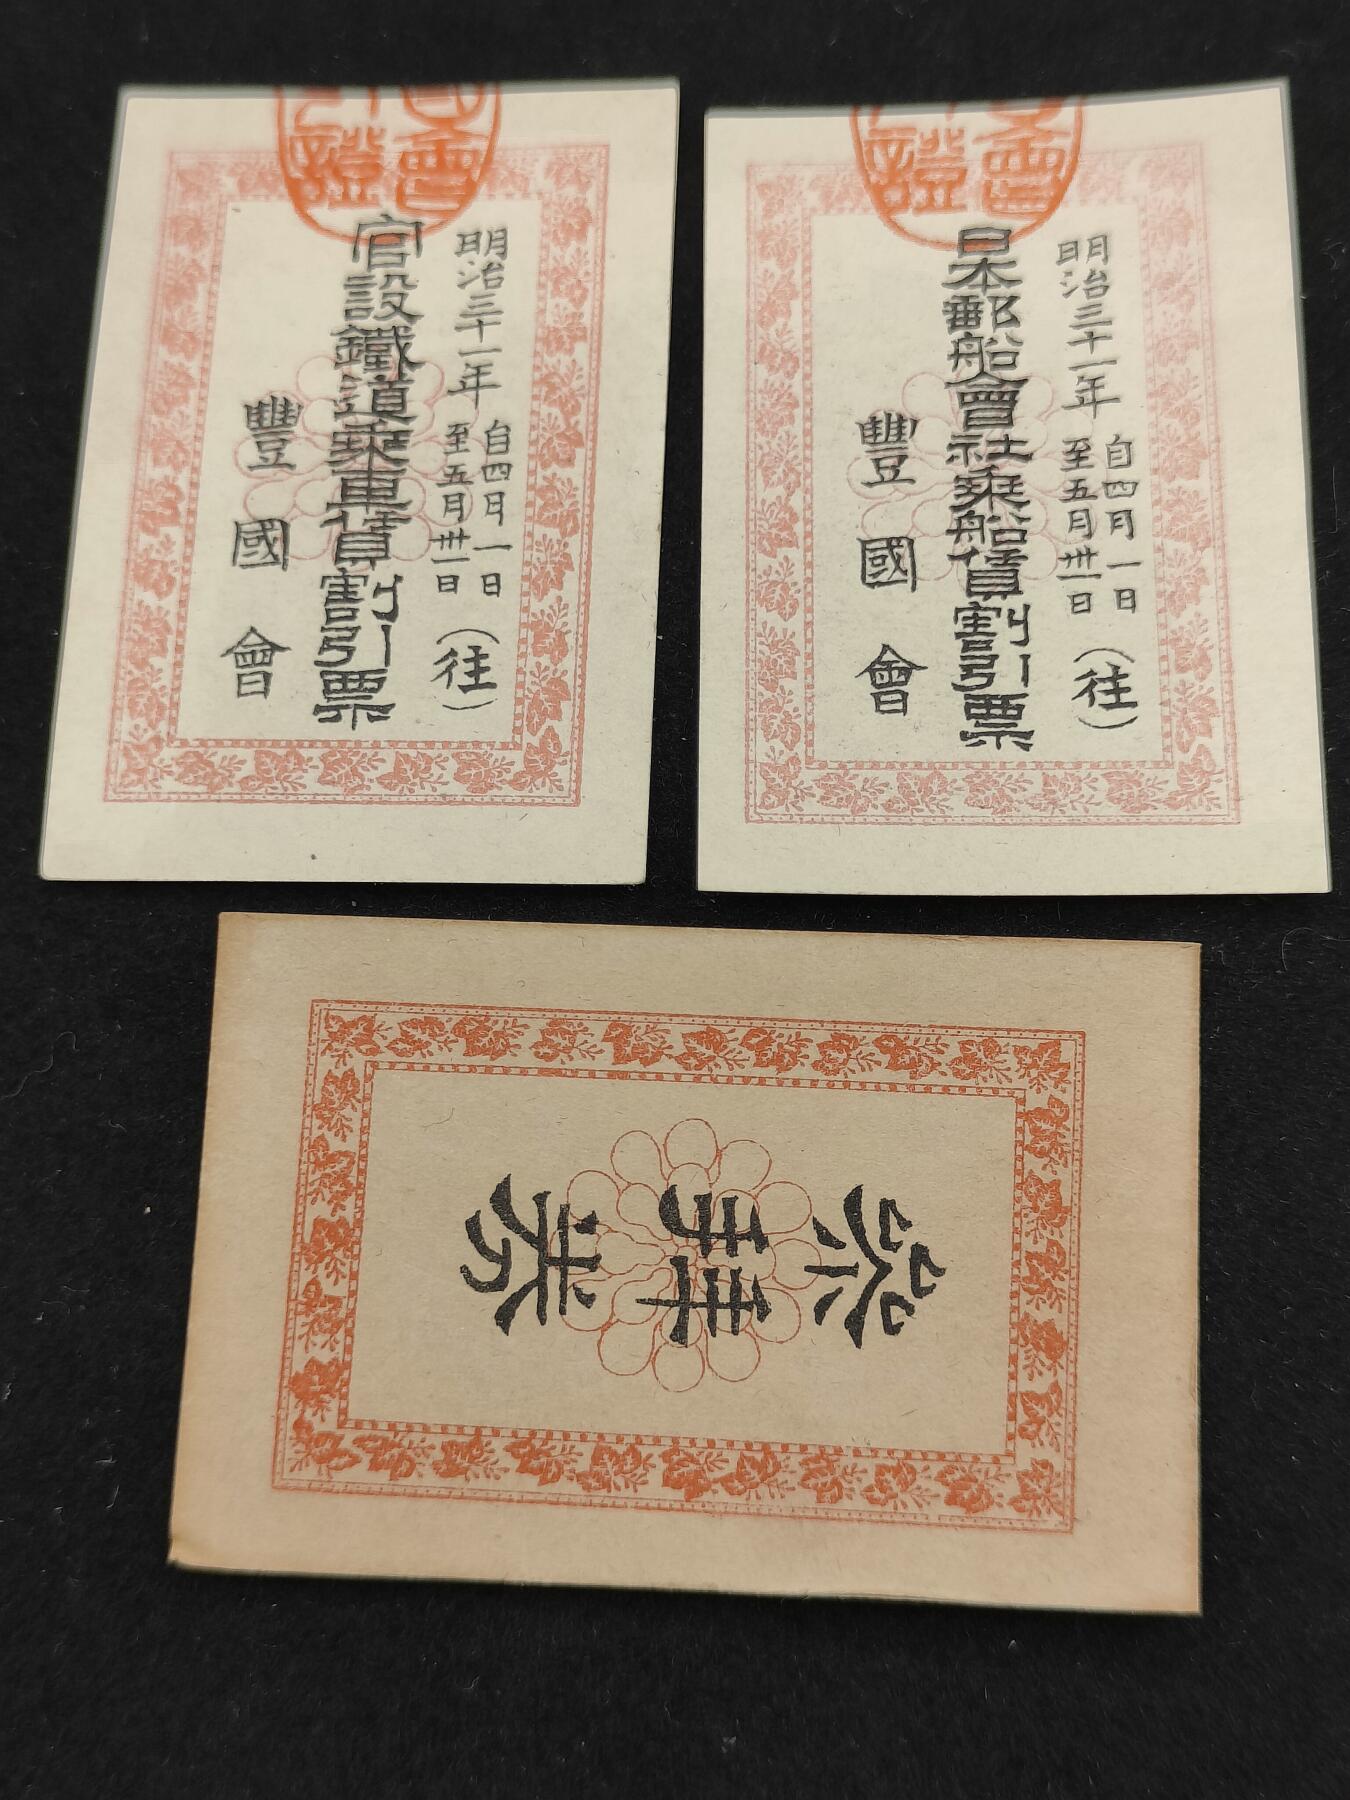 會
證
明治三十一年 自四月一日
至五月卅一日
(往)
官設鐵道乘車賃割引票
豐國會
會
證
明治三十一年 自四月一日
至五月卅一日
(往)
日本郵船會社乘船賃割引票
豐國會
叅拝券